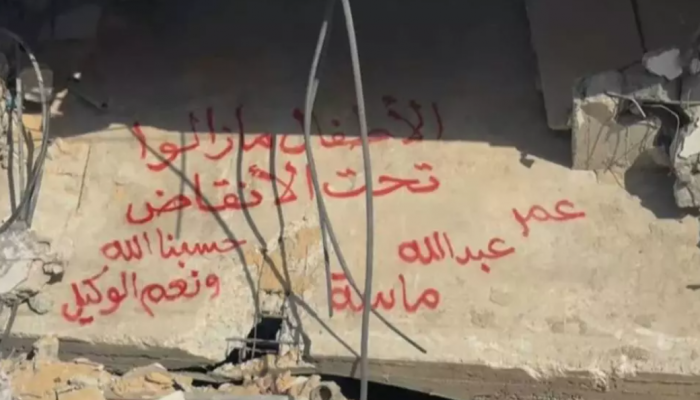 الأطفال مازالوا
تحت الأنقاض
عمر
عبدالله
ماسة
حسبنا الله
ونعم الوكيل